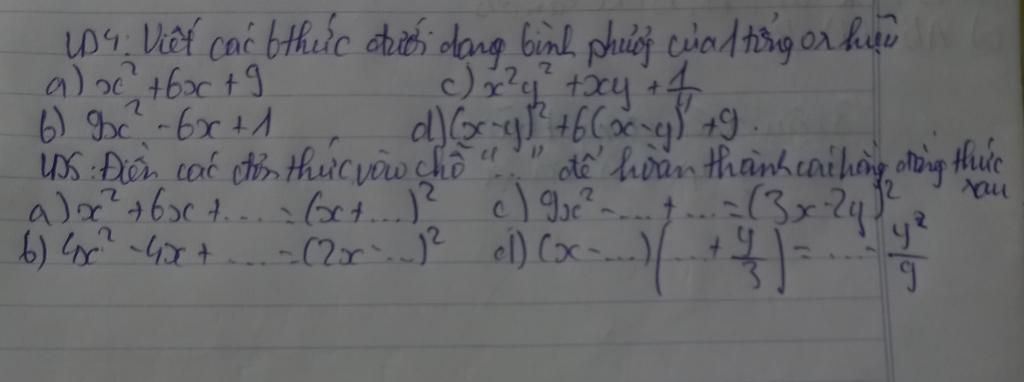 VD4: Viết các bthức dưới dạng bình phương của 1 tổng or hiệu
a) x² + 6x + 9 c) x²y² + xy + 1/4
b) 9x² - 6x + 1 d) (x-y)² + 6(x-y) + 9.
VD5: Điền các đơn thức vào chỗ "..." để hoàn thành các hằng đẳng thức sau
a) x² + 6x + .... = (x + ...)² c) 9x² - .... + .... = (3x - 2y)²
b) 4x² - 4x + .... = (2x - ...)² d) (x - ....)(... + y/3) = .... - y²/9